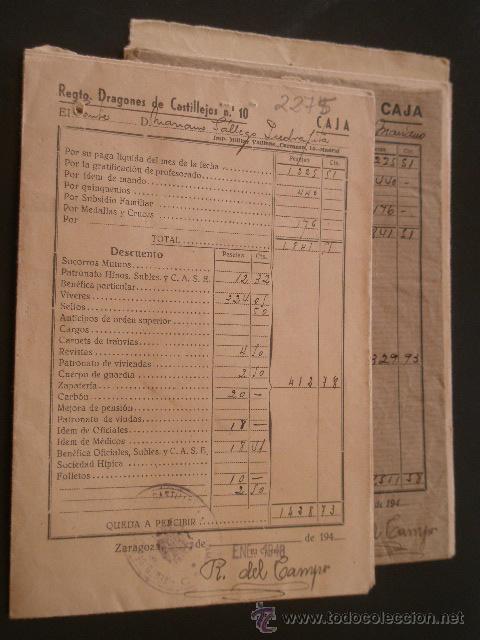 Regto. Dragones de Castillejos n.º 10
2275
El Tente D. Mariano Gállego Piedrafita CAJA
Imp. Militar
Pesetas Cts.
Por su paga líquida del mes de la fecha 1.225 51
Por la gratificación de profesorado
Por ídem de mando 440
Por quinquenios
Por Subsidio Familiar
Por Medallas y Cruces 176
Por
TOTAL 1841 51
Descuento Pesetas Cts.
Socorros Mutuos
Patronato Hnos. Subles. y C. A. S. E. 12 32
Benéfica particular
Víveres 324 05
Sellos 50
Anticipos de orden superior
Cargos
Carnets de tranvías
Revistas 4 50
Patronato de viviendas
Cuerpo de guardia 2 50
Zapatería 412 78
Carbón 20 —
Mejora de pensión
Patronato de viudas
Idem de Oficiales 18 —
Idem de Médicos
Benéfica Oficiales, Subles. y C. A. S. E. 18 51
Sociedad Hípica
Folletos 10 —
2 50
QUEDA A PERCIBIR 1428 73
Zaragoza de ENE 1948 de 194
R. del Campo
CAJA
225 51
440 —
176 —
841 51
329 93
1511 58
de 194
Campo
todocoleccion.net
www.todocoleccion.net